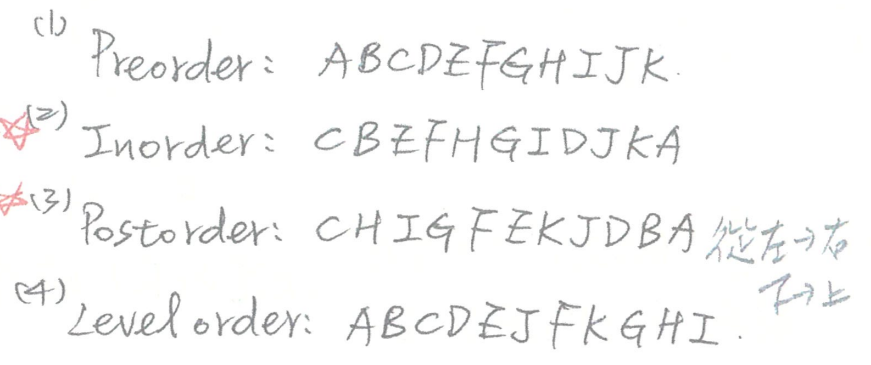 (1) Preorder: ABCDEFGHIJK.
(2) Inorder: CBEFHGIDJKA
(3) Postorder: CHIGFEKJDBA 從左→右
下→上
(4) Level order: ABCDEJFKGHI.